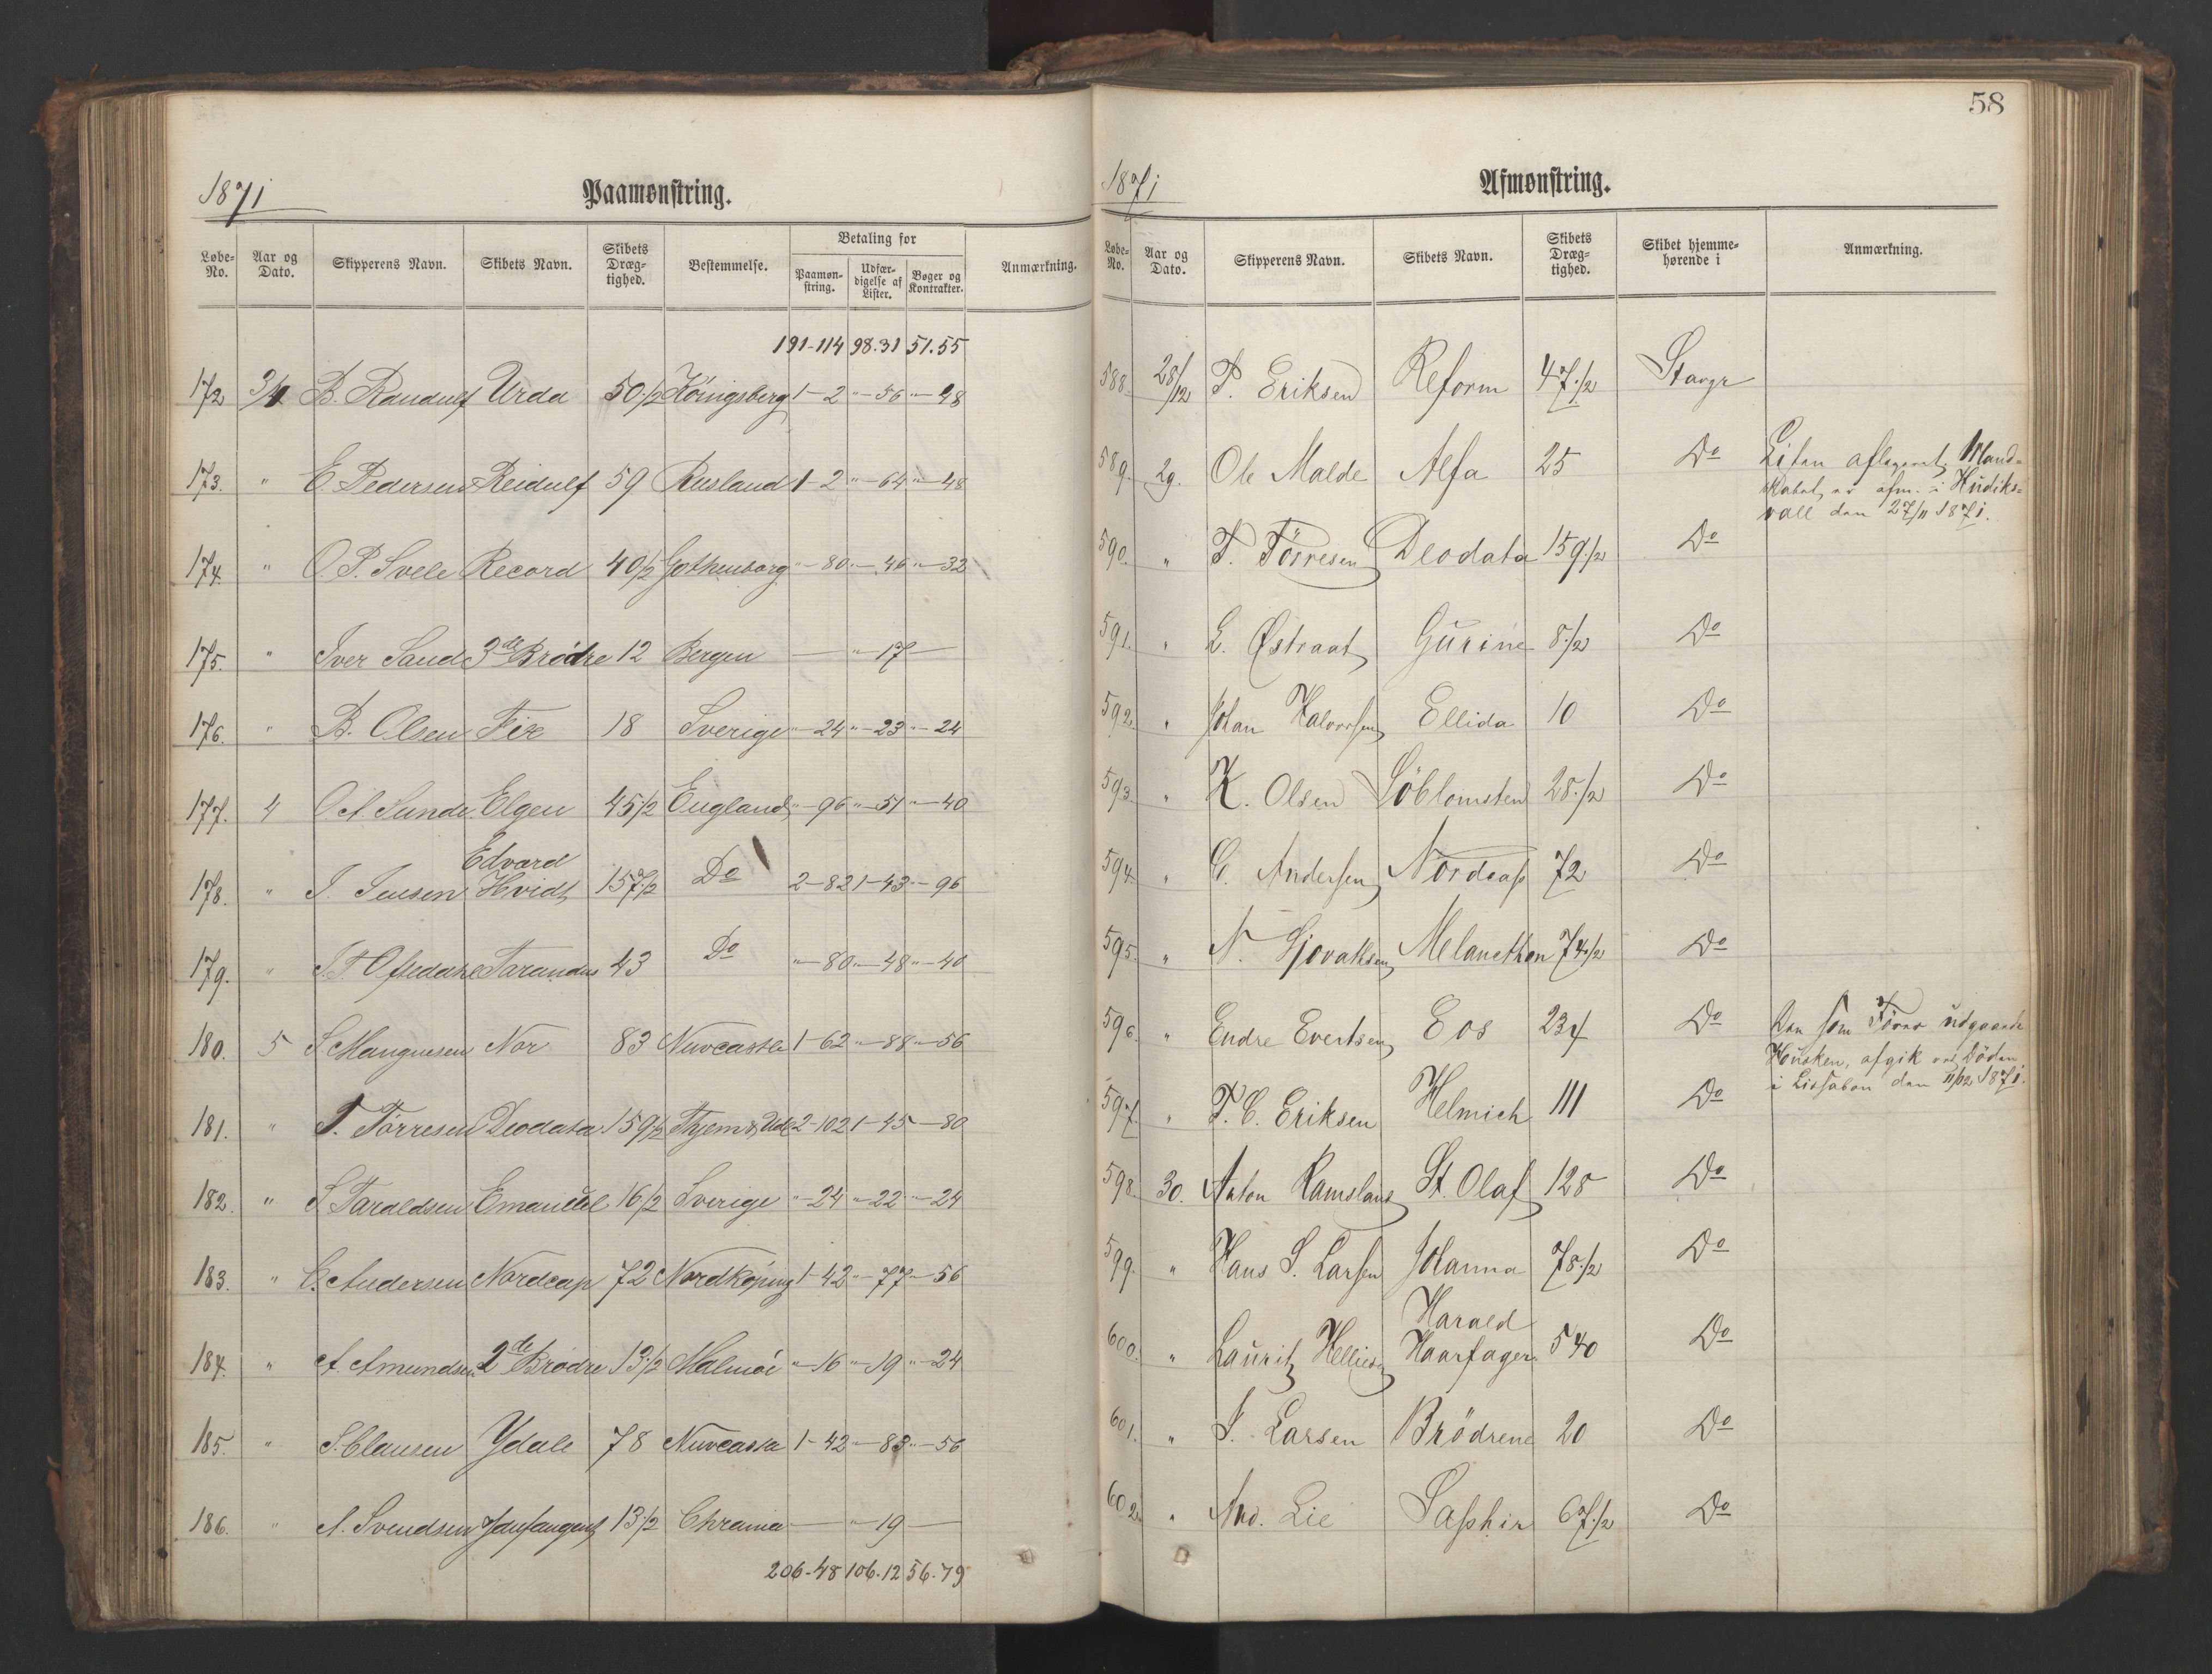 58
1871 Paamønstring.
Løbe-No. Aar og Dato. Skipperens Navn. Skibets Navn. Skibets Dræg-tighed. Bestemmelse. Betaling for Paamøn-string. Udfær-digelse af Lister. Bøger og Kontrakter. Anmærkning.
191-114 98.31 51.55
172 3/4 B. Randulf Urda 50 1/2 Königsberg 1-2 "-56 "-48
173. " E. Pedersen Reidulf 59 Rusland 1 2 "-64 "-48
174. " O. P. Svele Record 40 1/2 Gothenborg "-80 "-46 "-32
175. " Iver Sand 3de Brödre 12 Bergen — "-17 —
176. " B. Olsen Fix 18 Sverige "-24 "-23 "-24
177. 4 O A. Sunde Elgen 45 1/2 England "-96 "-51 "-40
178. " J. Jensen Edvard Hvidt 157 1/2 Do 2-82 1-43 "-96
179. " Tarandus 43 Do "-80 "-48 "-40
180. 5 S Mangnesen Nor 83 Nuvcastle 1-62 "-88 "-56
181. " T. Törresen Deodata 159 1/2 2-102 1-45 -80
182. " S Taraldsen Emanuel 16 1/2 Sverige "-24 "-22 "-24
183. " C. Andersen Nordcap 72 Nordköping 1-42 "-77 "-56
184. " A. Amundsen 2de Brödre 13 1/2 Malmöe "-16 "-19 "-24
185. " S. Clausen Ydale 78 Nuvcastle 1-42 "-83 "-56
186. " A. Svendsen 13 1/2 Chrania — "-19 —
206-48 106.12 56.79
1871 Afmønstring.
Løbe-No. Aar og Dato. Skipperens Navn. Skibets Navn. Skibets Dræg-tighed. Skibet hjemme-hørende i Anmærkning.
588. 28/12 P. Eriksen Reform 47 1/2 Stavgr
589. 29. Ole Malde Alfa 25 Do Listen aflagret, Mand-
skabet er afm. i Hudiks-
vall den 27/11 1871.
590. " T. Törresen Deodata 159 1/2 Do
591. " L. Østraat Gurine 8 1/2 Do
592. " Johan Halvorsen Ellida 10 Do
593. " K. Olsen Söblomsten 28 1/2 Do
594. " C. Andersen Nordcap 72 Do
595. " N. Melancthon 74 1/2 Do
596. " Endre Evertsen Eos 234 Do Den som Förer udgaaede
Housken, afgik ved Döden
i Lissabon den 11/12 1871.
597. " T. C. Eriksen Helmich 111 Do
598. 30. Anton Ramsland St. Olaf 128 Do
599. " Hans S. Larsen Johanna 78 1/2 Do
600. " Lauritz Helliesen Harald Haarfager 540 Do
601. " S. Larsen Brödrene 20 Do
602. " And. Lie Saphir 67 1/2 Do